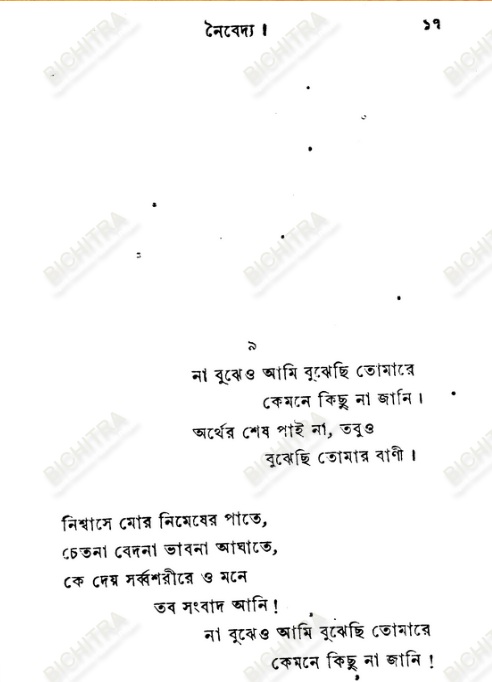 নৈবেদ্য। ১৭
৯
না বুঝেও আমি বুঝেছি তোমারে
কেমনে কিছু না জানি।
অর্থের শেষ পাই না, তবুও
বুঝেছি তোমার বাণী।
নিশ্বাসে মোর নিমেষের পাতে,
চেতনা বেদনা ভাবনা আঘাতে,
কে দেয় সর্ব্বশরীরে ও মনে
তব সংবাদ আনি!
না বুঝেও আমি বুঝেছি তোমারে
কেমনে কিছু না জানি!
BICHITRA